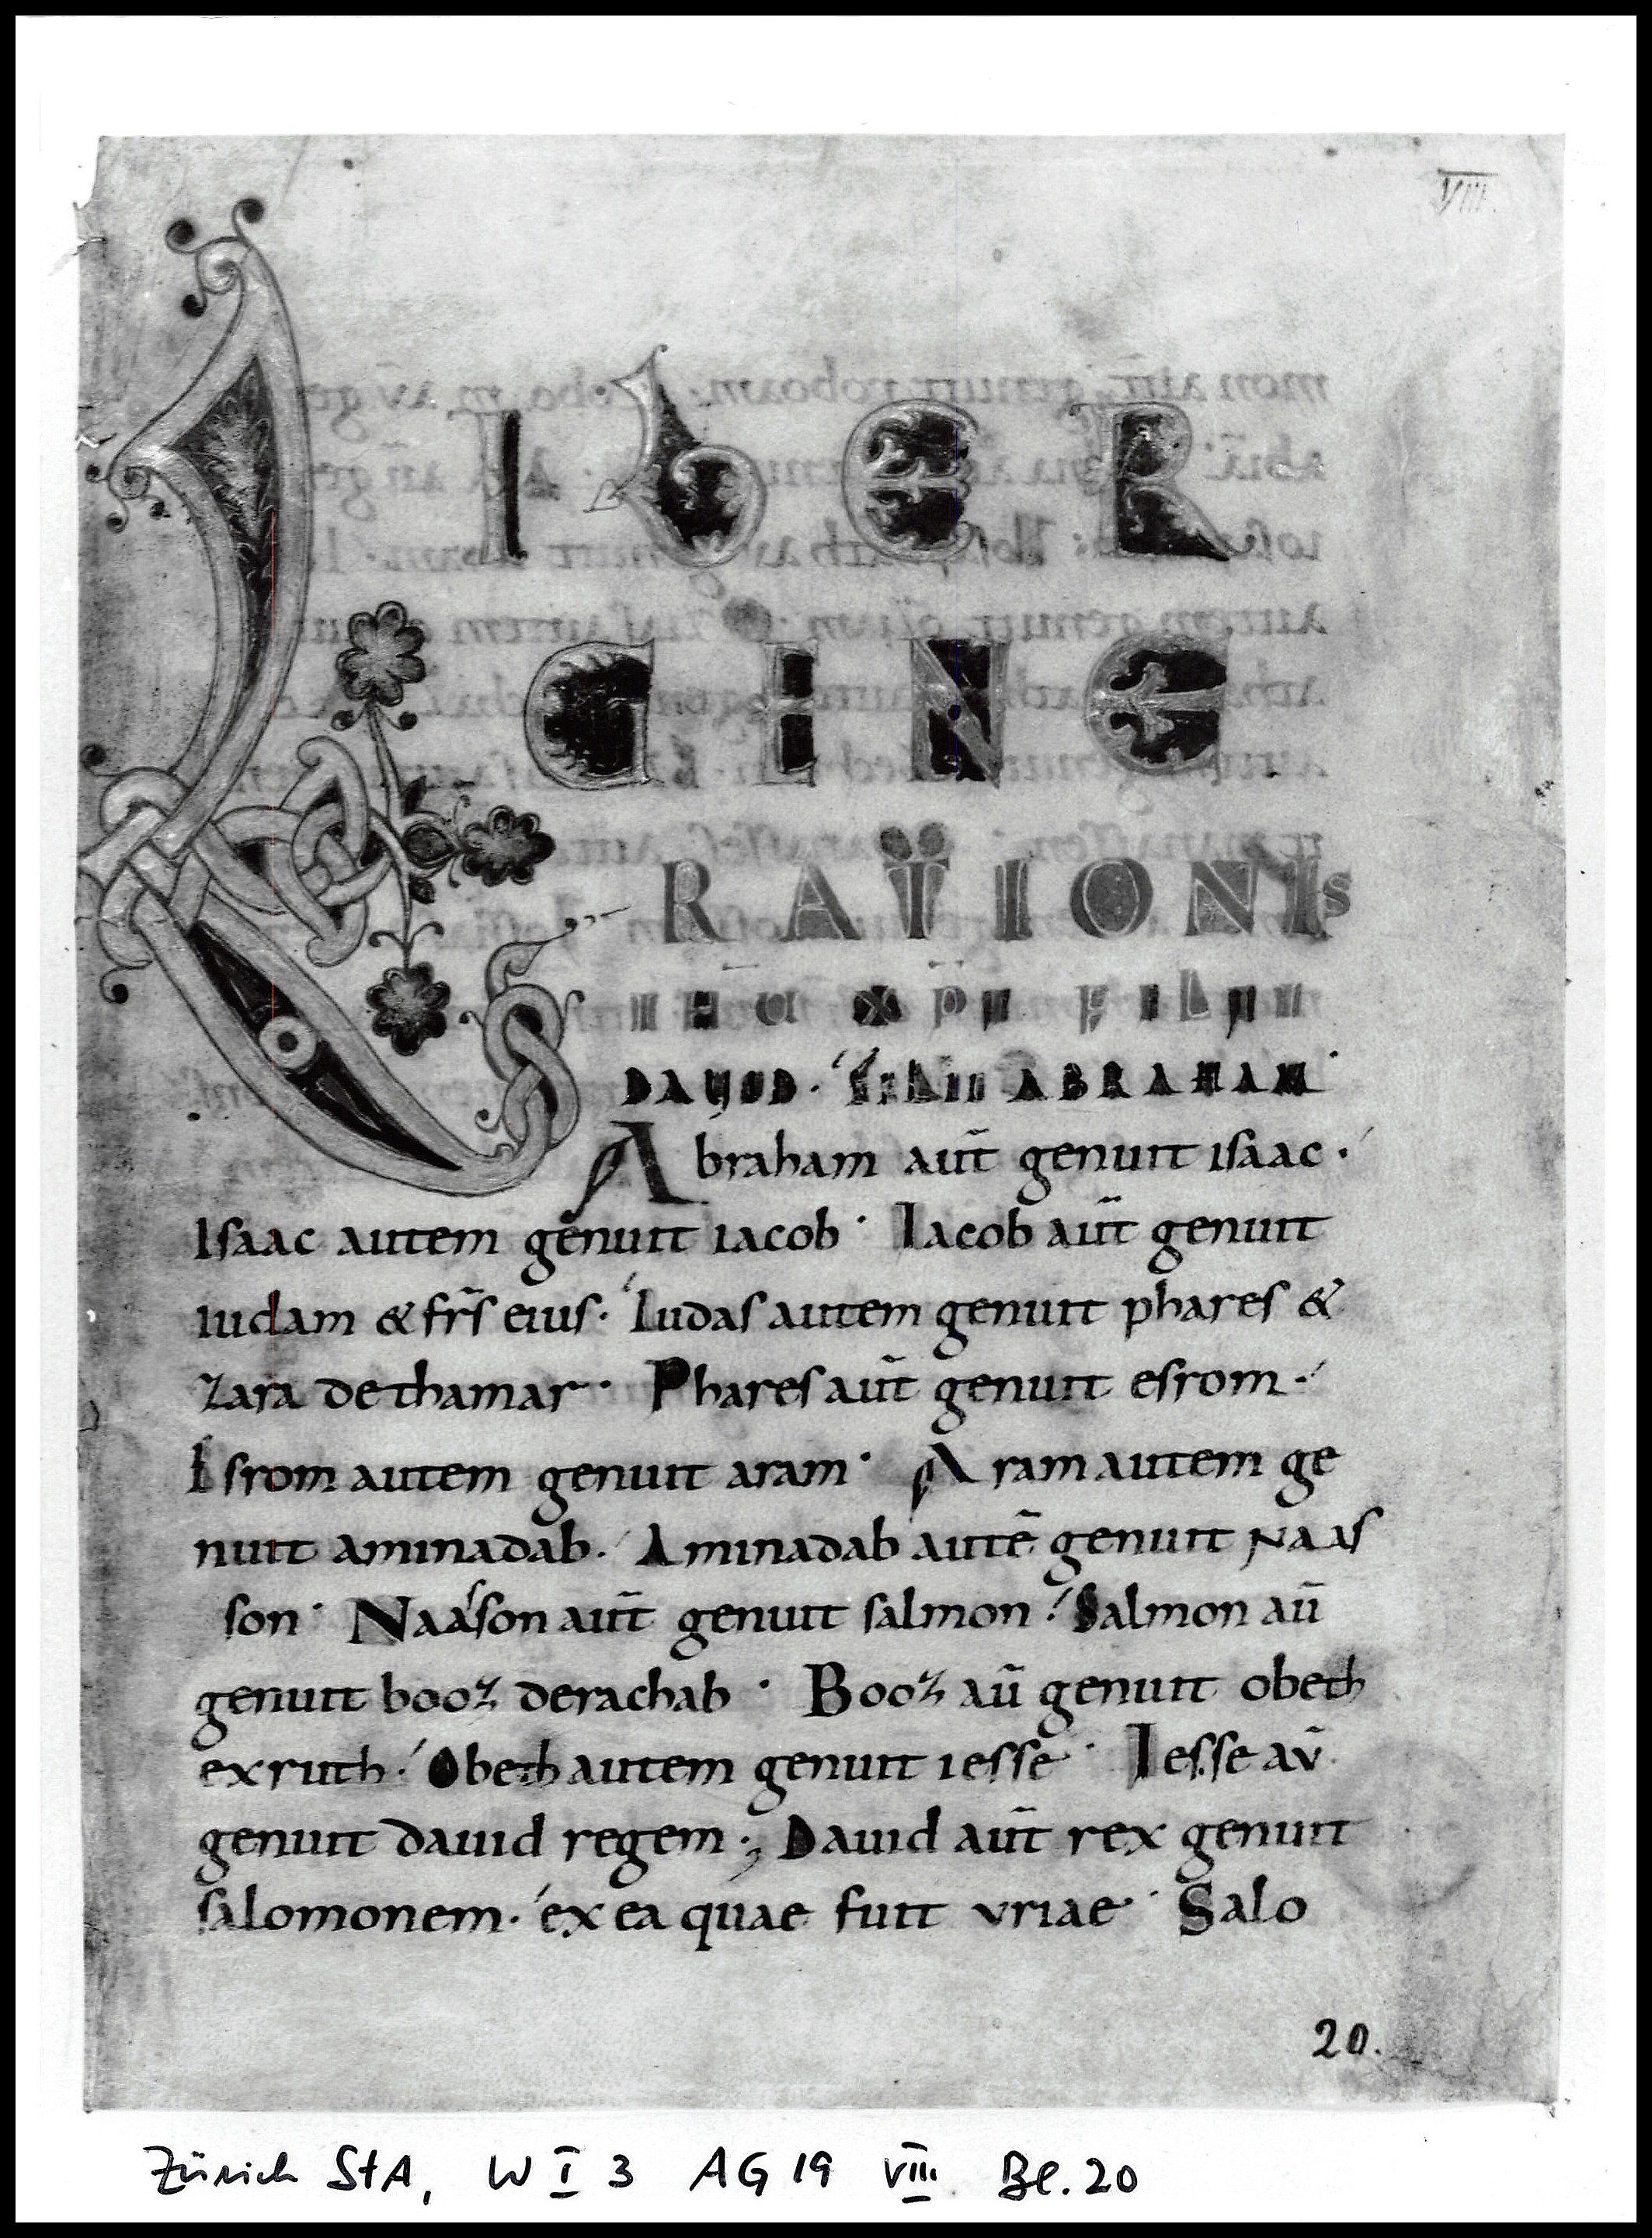 VIII.
LIbER
GENE
RATIONIs
IHU XPI FILII
DAVID · FILII ABRAHAM ·
Abraham aut̄ genuit isaac ·
Isaac autem genuit iacob · Iacob aut̄ genuit
iudam & fr̄s eius · Iudas autem genuit phares &
zara dethamar · Phares aut̄ genuit esrom ·
Esrom autem genuit aram · Aram autem ge
nuit aminadab · Aminadab autē genuit Naas
son · Naasson aut̄ genuit salmon · Salmon aū
genuit booz derachab · Booz aū genuit obeth
exruth · Obeth autem genuit iesse · Iesse av̄
genuit dauid regem ·, Dauid aut̄ rex genuit
salomonem · ex ea quae fuit vriae · Salo
20.
Zürich StA, W I 3 AG 19 VIII Bl. 20